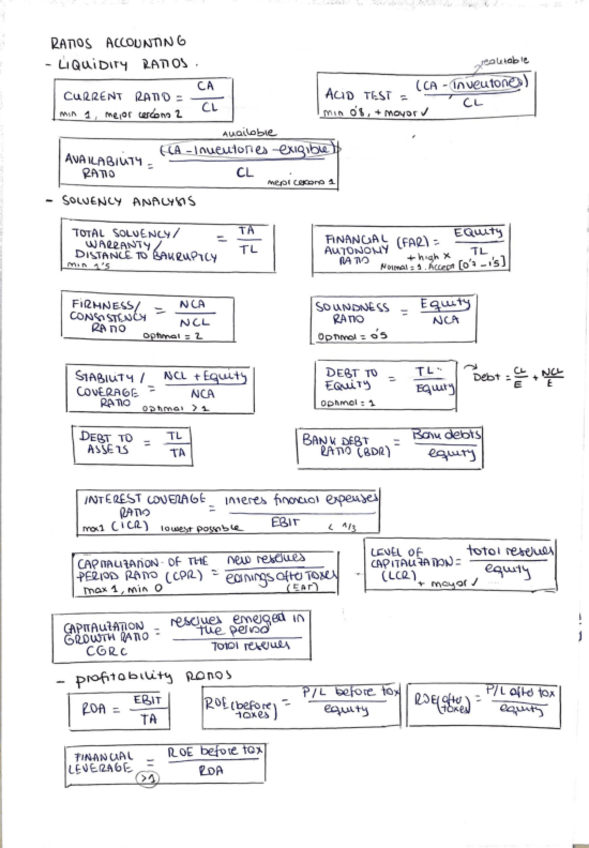 RATIOS ACCOUNTING
- LIQUIDITY RATIOS.
CURRENT RATIO = CA / CL
min 1, mejor cercano 2
realizable
ACID TEST = (CA - Inventories) / CL
min 0'8, + mayor ✓
Available
AVAILABILITY RATIO = (CA - Inventories - exigible) / CL
mejor cercano 1
- SOLVENCY ANALYSIS
TOTAL SOLVENCY/ WARRANTY/ DISTANCE TO BAKRUPTCY = TA / TL
min 1'5
FINANCIAL AUTONOMY RATIO (FAR) = Equity / TL
+ high x
Normal = 1. Accept [0'7 - 1'5]
FIRMNESS/ CONSISTENCY RATIO = NCA / NCL
Optimal = 2
SOUNDNESS RATIO = Equity / NCA
Optimal = 0'5
STABILITY / COVERAGE RATIO = NCL + Equity / NCA
Optimal > 1
DEBT TO Equity = TL / Equity
Optimal = 1
Debt = CL / E + NCL / E
DEBT TO ASSETS = TL / TA
BANK DEBT RATIO (BDR) = Bank debts / equity
INTEREST COVERAGE RATIO (ICR) = interes financial expenses / EBIT
max 1 lowest possible < 1/3
CAPITALIZATION OF THE PERIOD RATIO (CPR) = new reserves / earnings after taxes (EAT)
max 1, min 0
LEVEL OF CAPITALIZATION (LCR) = total reserves / equity
+ mayor ✓
CAPITALIZATION GROWTH RATIO CGRC = reserves emerged in the period / Total reserves
- profitability RATIOS
ROA = EBIT / TA
ROE (before taxes) = P/L before tax / equity
ROE (after taxes) = P/L after tax / equity
FINANCIAL LEVERAGE = ROE before tax / ROA
>1